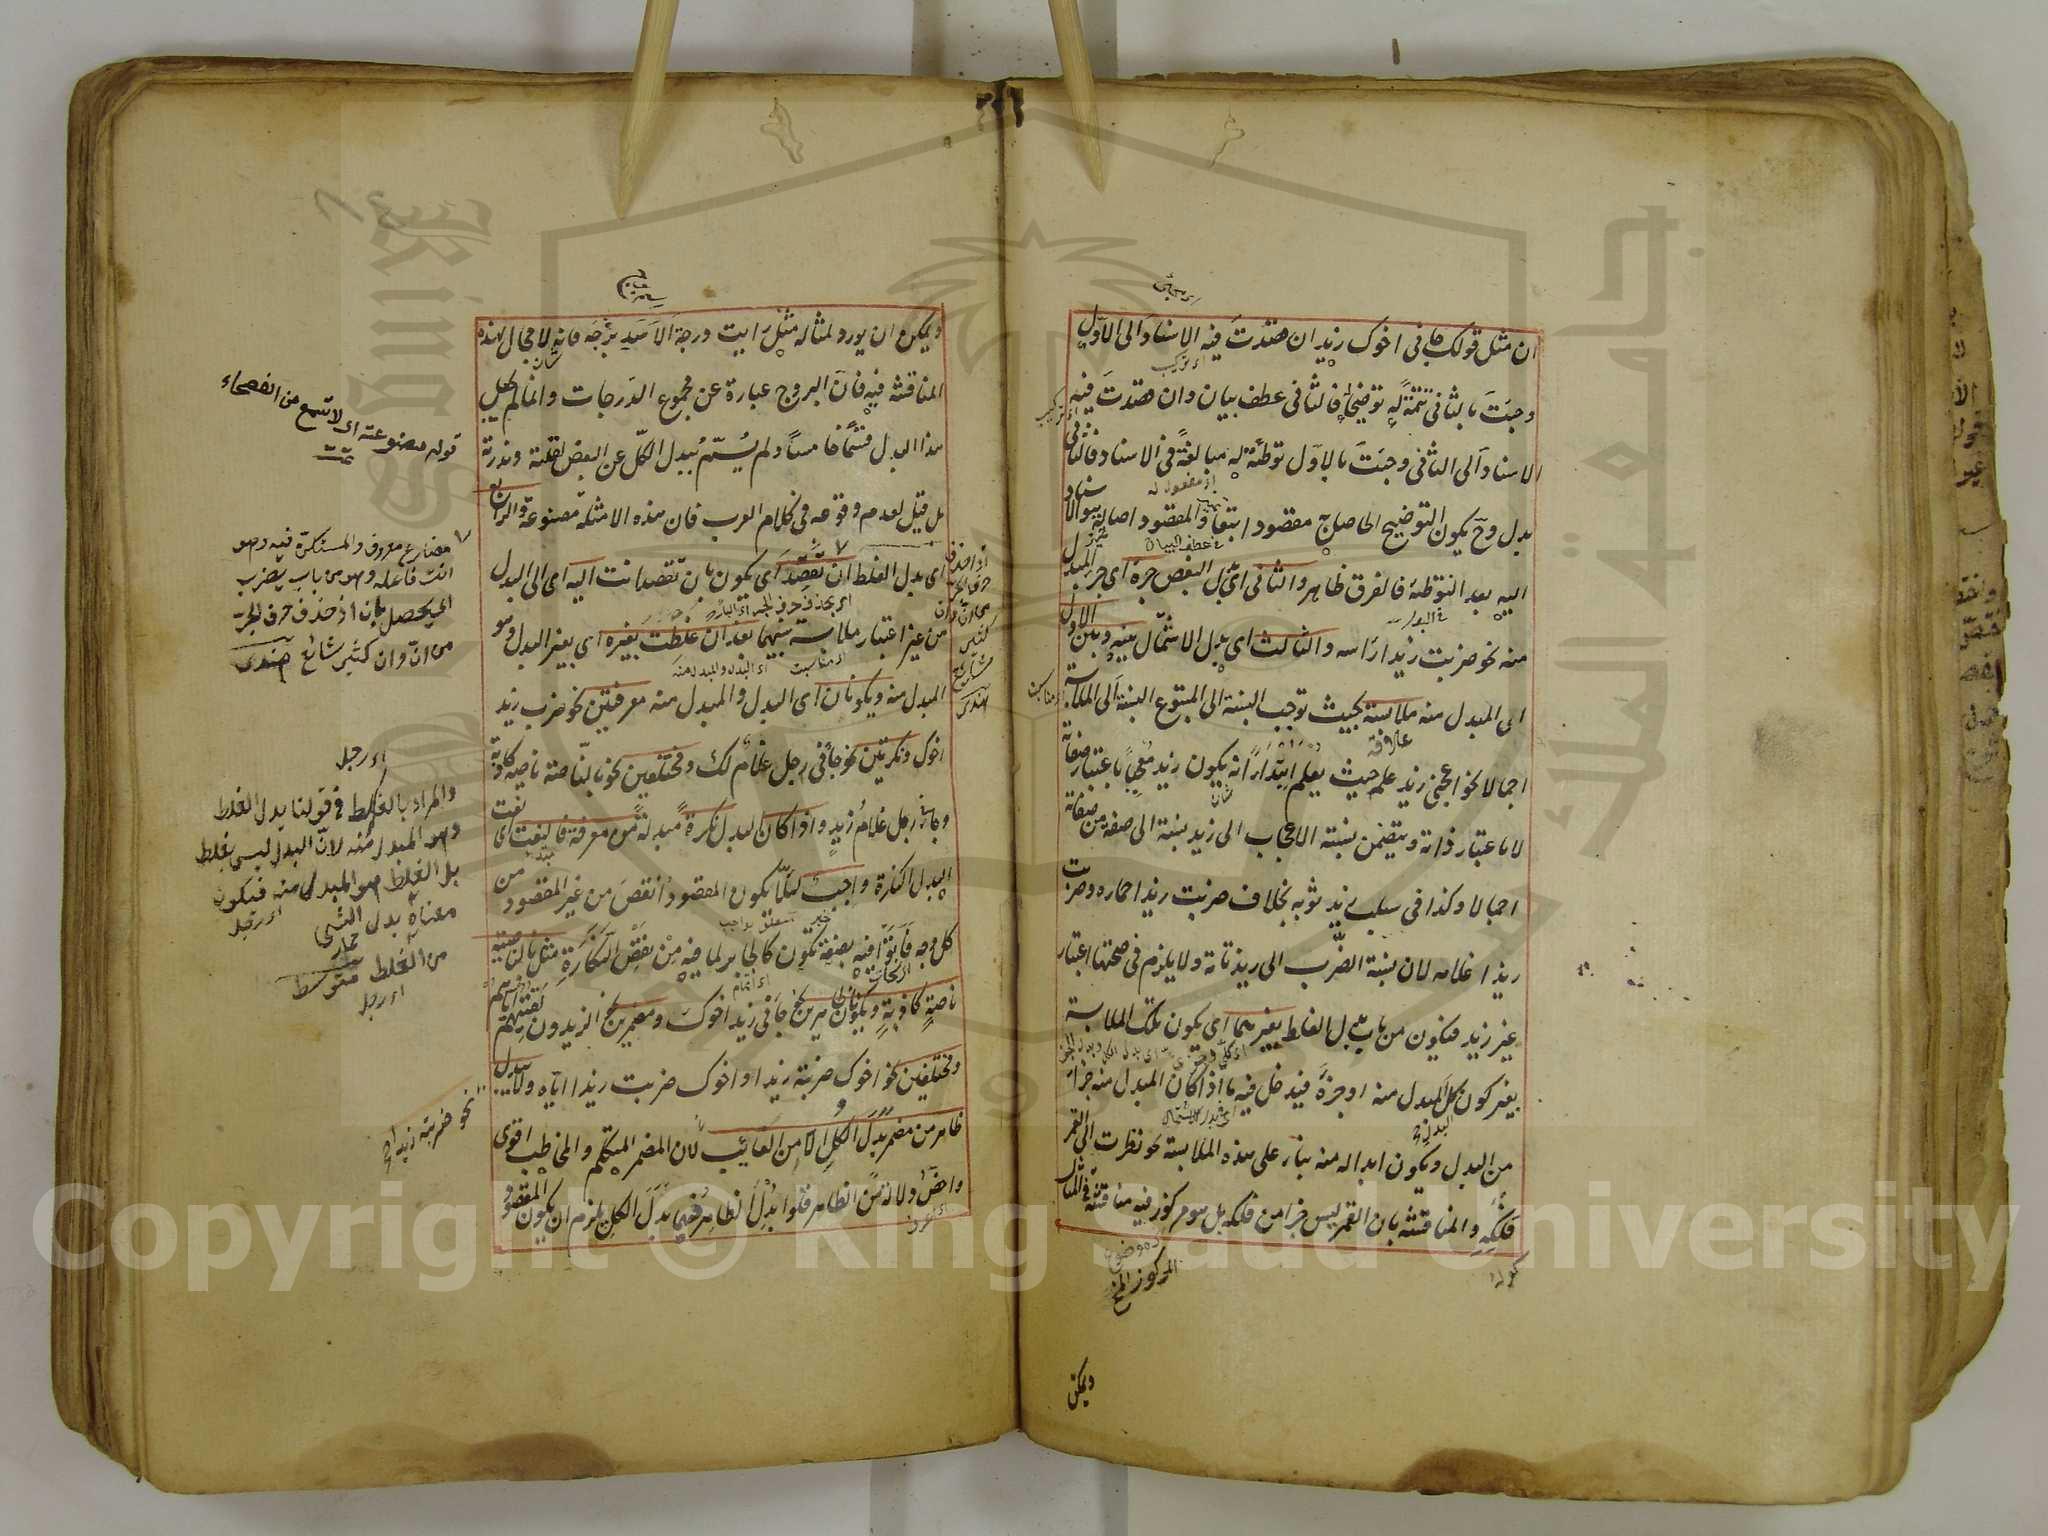 ان مثل قولك جاءنى اخوك زيد ان قصدت فيه الاسناد الى الاول
وجئت بالثانى تتمة له توضيحا فالثانى عطف بيان وان قصدت فيه
الاسناد الى الثانى وجئت بالاول توطئة له مبالغة فى الاسناد فالثانى
بدل وح يكون التوضيح الحاصل به مقصودا تبعا والمقصود اصالة هو الاسناد
اليه بعد التوطئة فالفرق ظاهر والثانى اى بدل البعض جزءه اى جزء المبدل
منه نحو ضربت زيدا راسه والثالث اى بدل الاشتمال بينه وبين الاول
اى المبدل منه ملابسة بحيث توجب النسبة الى المتبوع النسبة الى الملابس
اجمالا نحو اعجبنى زيد علمه حيث يعلم ابتداء انه يكون زيد معجبا باعتبار صفاته
لا باعتبار ذاته ويتضمن نسبة الاعجاب الى زيد نسبة الى صفة من صفاته
اجمالا وكذا فى سلب زيد ثوبه بخلاف ضربت زيدا حماره وضربت
زيدا غلامه لان نسبة الضرب الى زيد تامة ولا يلزم فى صحتها اعتبار
غير زيد فيكون من باب بدل الغلط بغيرهما اى يكون تلك الملابسة
بغير كون البدل كل المبدل منه او جزءه فيدخل فيه ما اذا كان المبدل منه جزءا
من البدل ويكون ابداله منه بناء على هذه الملابسة نحو نظرت الى القمر
فلكه والمناقشة بان القمر ليس جزءا من فلكه بل هو مركوز فيه مناقشة فى المثال
المركوز الخ
ويمكن
ويمكن ان يورد لمثاله مثل رايت درجة الاسد برجه فانه لا مجال لهذه
المناقشة فيه فان البروج عبارة عن مجموع الدرجات وانما لم يجعل
هذا البدل قسما خامسا ولم يسم ببدل الكل عن البعض لقلته وندرته
بل قيل لعدم وقوعه فى كلام العرب فان هذه الامثلة مصنوعة والرابع
اى بدل الغلط ان تقصد اى يكون بان تقصد انت اليه اى الى البدل
من غير اعتبار ملابسة بينهما بعد ان غلطت بغيره اى بغير البدل وهو
المبدل منه ويكونان اى البدل والمبدل منه معرفتين نحو ضرب زيد
اخوك ونكرتين نحو جاءنى رجل غلام لك ومختلفين نحو بالناصية ناصية كاذبة
وجاءنى رجل غلام زيد واذا كان البدل نكرة مبدلة من معرفة فالنعت اى نعت
البدل النكرة واجب لئلا يكون المقصود انقص من غير المقصود من
كل وجه فاتوا فيه بصفة تكون كالجابر لما فيه من نقص النكارة مثل بالناصية
ناصية كاذبة ويكونان ظاهرين نحو جاءنى زيد اخوك ومضمرين نحو الزيدون لقيتهم اياهم
ومختلفين نحو اخوك ضربته زيدا واخوك ضربت زيدا اياه ولا يبدل
ظاهر من مضمر بدل الكل الا من الغائب لان المضمر المتكلم والمخاطب اقوى
واخص دلالة من الظاهر فلو ابدل الظاهر منهما بدل الكل يلزم ان يكون المقصود
قوله مصنوعة اى لا تسمع من الفصحاء
مضارع معروف والمستكن فيه وهو
انت فاعله وهو من باب يضرب
اى يحصل بان اذ حذف حرف الجر
من ان وان كثير شائع هندى
اى رجل
والمراد بالغلط فى قولنا بدل الغلط
وهو المبدل منه لان البدل ليس بغلط
بل الغلط هو المبدل منه فيكون
معناه بدل الشئ
من الغلط متوسط
اى رجل
نحو ضربته زيدا
Copyright © King Saud University